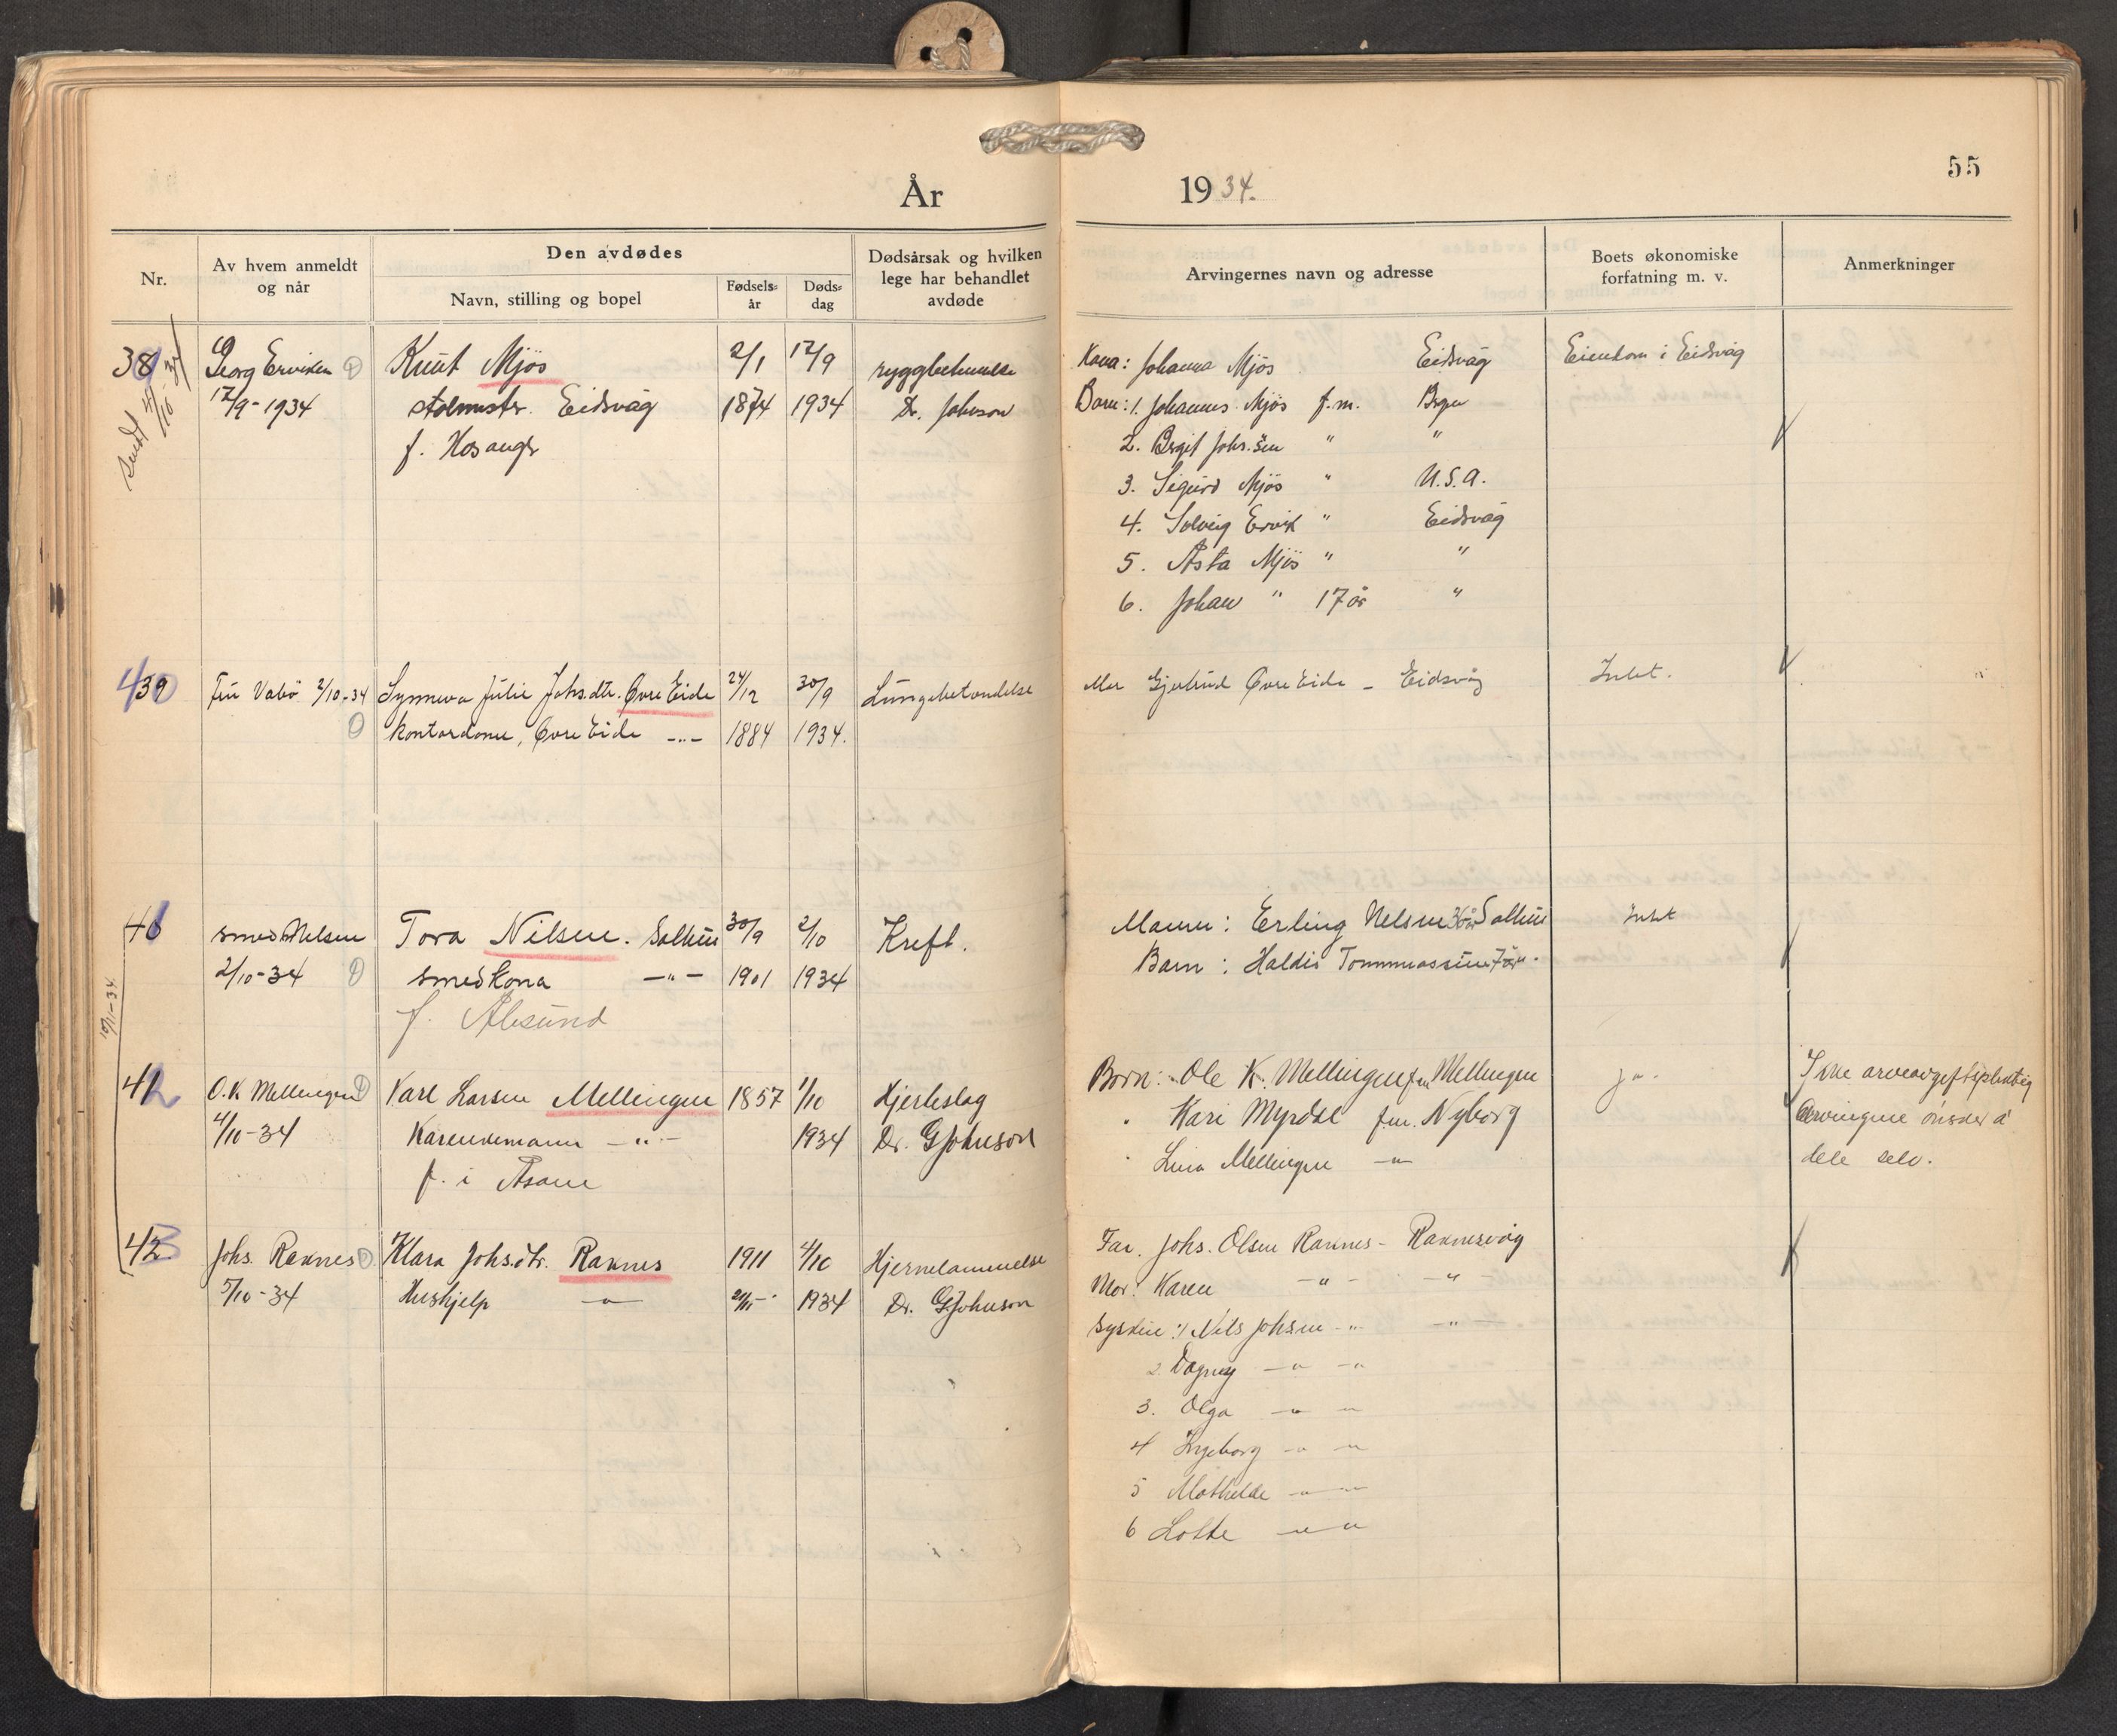 55
År 1934.
Nr.
Av hvem anmeldt
og når
Den avdødes
Navn, stilling og bopel
Fødsels-
år
Døds-
dag
Dødsårsak og hvilken
lege har behandlet
avdøde
Arvingernes navn og adresse
Boets økonomiske
forfatning m. v.
Anmerkninger
Georg Erviken Knut Mjøs 2/1 17/9 Kona: Johanna Mjøs Eidsvåg Eiendom i Eidsvåg
17/9-1934 Eidsvåg 1874 1934 Dr. Johnson Barn: 1. Johannes Mjøs f.m. Bergen
f. Hosanger 2. Birgit " "
3. Sigurd Mjøs " U.S.A.
4. Solveig Ervik " Eidsvåg
5. Asta Mjøs " "
6. Johan " 17 år "
Sendt
39 2/10-34 Synneva Julie Johs.dtr. Øvre Eide 24/12 30/9 Lungebetendelse Mor Gjertrud Øvre Eide - Eidsvåg Intet.
kontordame, Øvre Eide -"- 1884 1934.
smed Nelsen Tora Nilsen. Salhus 30/9 2/10 Kreft. Mann: Erling Nelsen Salhus Intet
2/10-34 smedkona -"- 1901 1934 Barn: Haldis
f. Ålesund
10/11-34
42 O.K. Mellingen Karl Larsen Mellingen 1857 1/10 Hjerteslag Born: Ole K. Mellingen fm Mellingen ja. Ikke arveavgiftspliktig
4/10-34 -"- 1934 Dr. G Johnson " Kari Myrdal f.m. Nyborg Arvingene ønsker å
f. i Åsane " Lina Mellingen -"- dele selv.
43 Johs. Raknes Klara Johs.dtr. Raknes 1911 4/10 Hjernelammelse Far. Johs. Olsen Raknes - Raknesvåg
5/10-34 Hushjelp -"- 1934 Dr. G Johnson Mor: Karen -"- -"-
Sysken: 1 Nils Johsen -"- -"-
2. Dagny -"- -"-
3. Olga -"- -"-
4 Ingeborg -"- -"-
5 Mathilde -"- -"-
6 Lotte -"- -"-